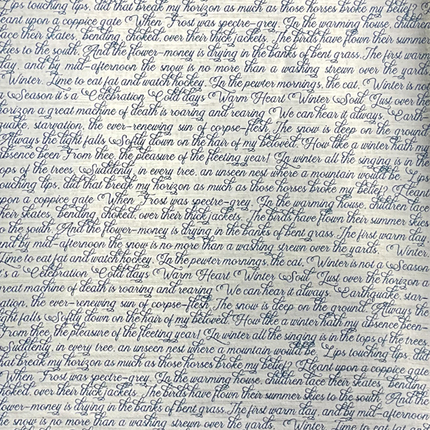 Lips touching lips, did that break my horizon as much as those horses broke my belief? I
leant upon a coppice gate When Frost was spectre-grey. In the warming house, children
lace their skates, bending, choked, over their thick jackets. The birds have flown their summer
skies to the south, And the flower-money is drying in the banks of bent grass. The first warm
day, and by mid-afternoon the snow is no more than a washing strewn over the yards,
Winter. Time to eat fat and watch hockey. In the pewter mornings, the cat, Winter is not
a Season it's a Celebration Cold days Warm Heart Winter Soul Just over the
horizon a great machine of death is roaring and rearing We can hear it always. Earth-
quake, starvation, the ever-renewing sun of corpse-flesh. The snow is deep on the ground.
Always the light falls Softly down on the hair of my beloved. How like a winter hath
absence been From thee, the pleasure of the fleeting year! In winter all the singing is in the
tops of the trees Suddenly, in every tree, an unseen nest where a mountain would be. Lips
touching lips, did that break my horizon as much as those horses broke my belief? I leant
upon a coppice gate When Frost was spectre-grey. In the warming house, children lace
their skates, bending, choked, over their thick jackets. The birds have flown their summer skies
to the south, And the flower-money is drying in the banks of bent grass. The first warm day,
and by mid-afternoon the snow is no more than a washing strewn over the yards, Winter.
Time to eat fat and watch hockey. In the pewter mornings, the cat, Winter is not a Season
it's a Celebration Cold days Warm Heart Winter Soul Just over the horizon
great machine of death is roaring and rearing We can hear it always. Earthquake, star-
ation, the ever-renewing sun of corpse-flesh. The snow is deep on the ground. Always the
light falls Softly down on the hair of my beloved. How like a winter hath my absence been
From thee, the pleasure of the fleeting year! In winter all the singing is in the tops of the trees
Suddenly, in every tree, an unseen nest where a mountain would be. Lips touching lips, did
that break my horizon as much as those horses broke my belief? I leant upon a coppice gate
When Frost was spectre-grey. In the warming house, children lace their skates, bending,
choked, over their thick jackets. The birds have flown their summer skies to the south, And the
flower-money is drying in the banks of bent grass. The first warm day, and by mid-afternoon
he snow is no more than a washing strewn over the yards, Winter. Time to eat fat